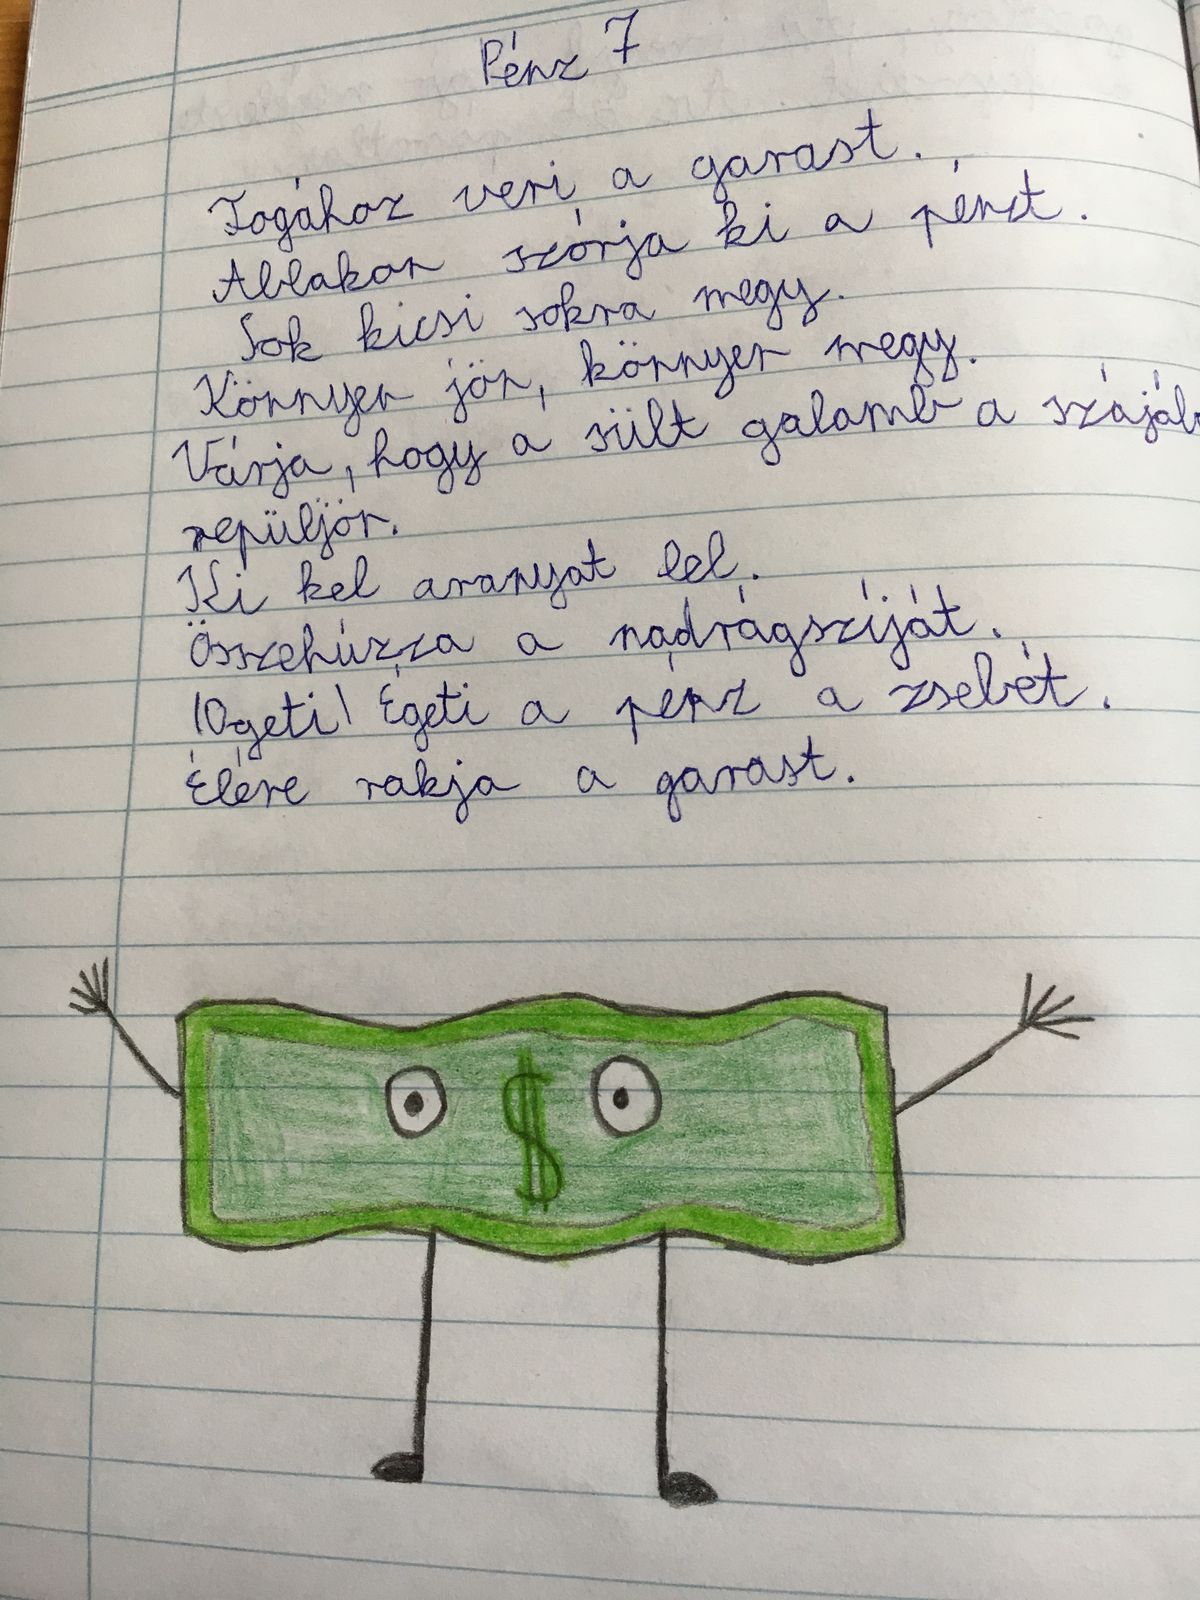 Pénz 7
Fogához veri a garast.
Ablakon szórja ki a pénzt.
Sok kicsi sokra megy.
Könnyen jön, könnyen megy.
Várja, hogy a sült galamb a szájáb
repüljön.
Ki kel aranyat lel.
Összehúzza a nadrágszíját.
(Ogeti) Égeti a pénz a zsebét.
Élére rakja a garast.
$